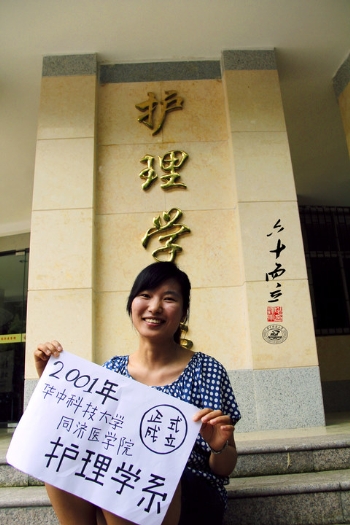 护理学
六十而立
2001年
华中科技大学
同济医学院
护理学系
正式
成立